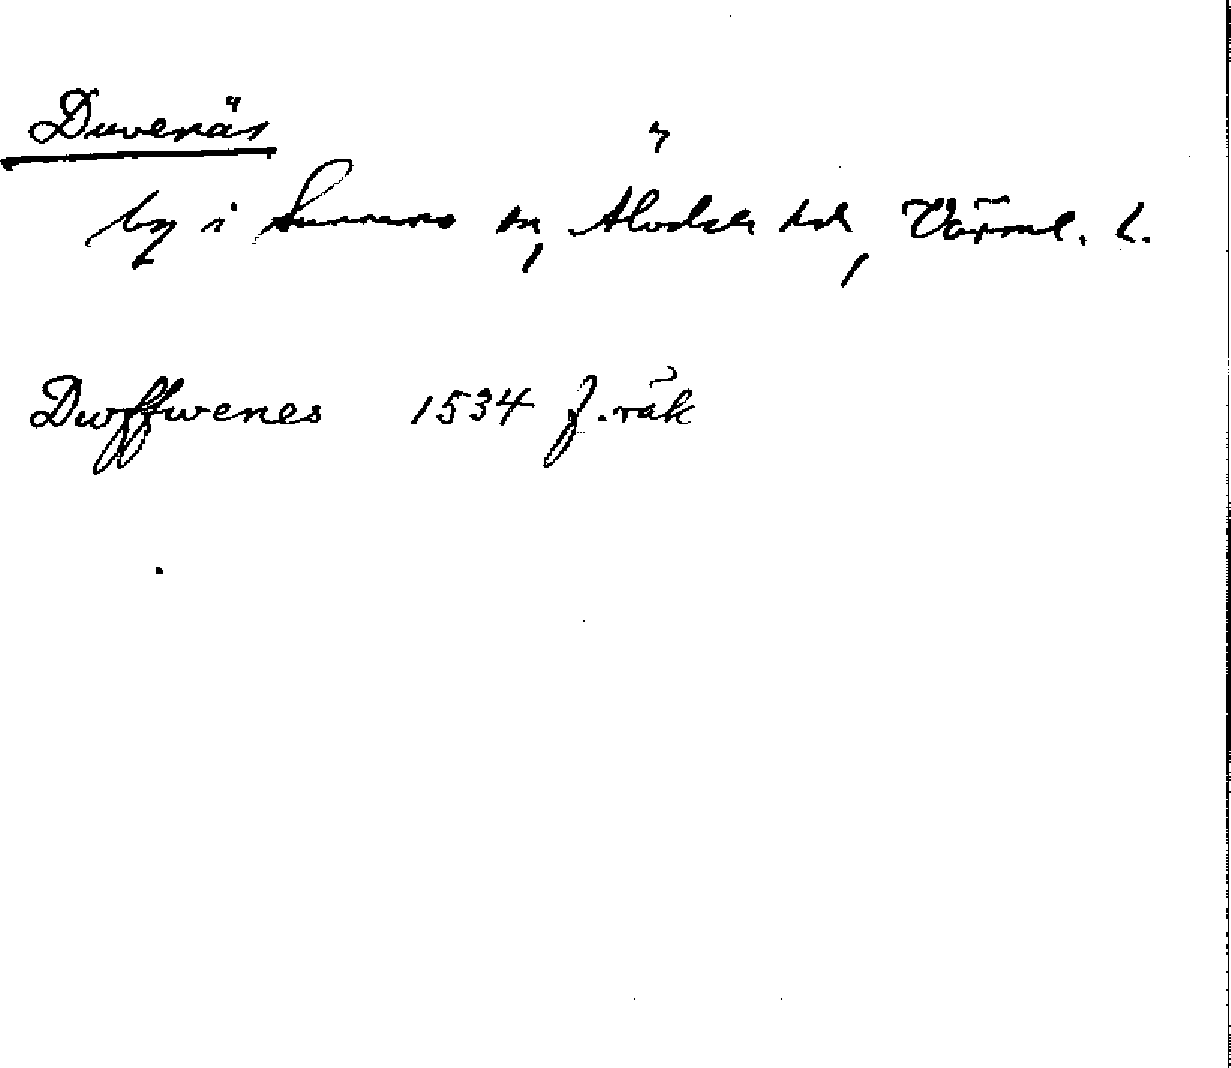 Duvenäs
by i Sunne sn, Älvdals hd, Värml. l.
Duffwenes 1534 f. räk